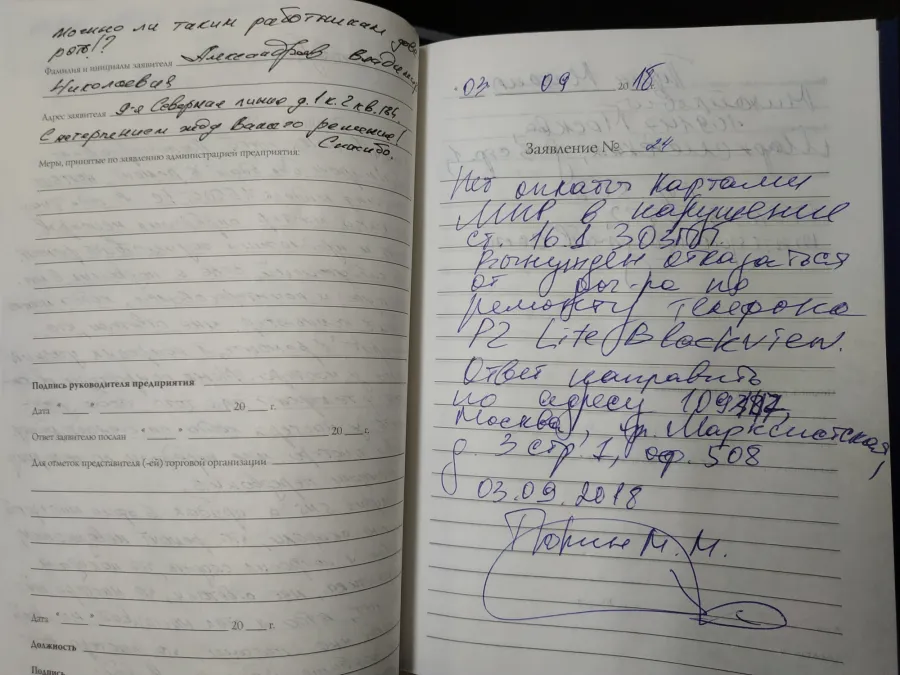 Можно ли таким работникам дове
рять!?
Фамилия и инициалы заявителя Александров Владимир
Николаевич
Адрес заявителя 9-я Северная линия д.1 к.2 кв.
С нетерпением жду Вашего решения!
Спасибо.
Меры, принятые по заявлению администрацией предприятия:
Подпись руководителя предприятия
Дата " " 20 г.
Ответ заявителю послан " " 20 г.
Для отметок представителя (-ей) торговой организации
Дата " " 20 г.
Должность
Подпись
03 09 2018 г.
Заявление № 24
Нет оплаты картами
МИР, в нарушение
ст. 16.1 ЗОЗПП.
Вынужден отказаться
от дог-ра по
ремонту телефона
P2 Lite Blackview.
Ответ направить
по адресу
Москва, ул. Марксистская,
д. 3 стр. 1, оф. 508
03.09.2018
М. М.